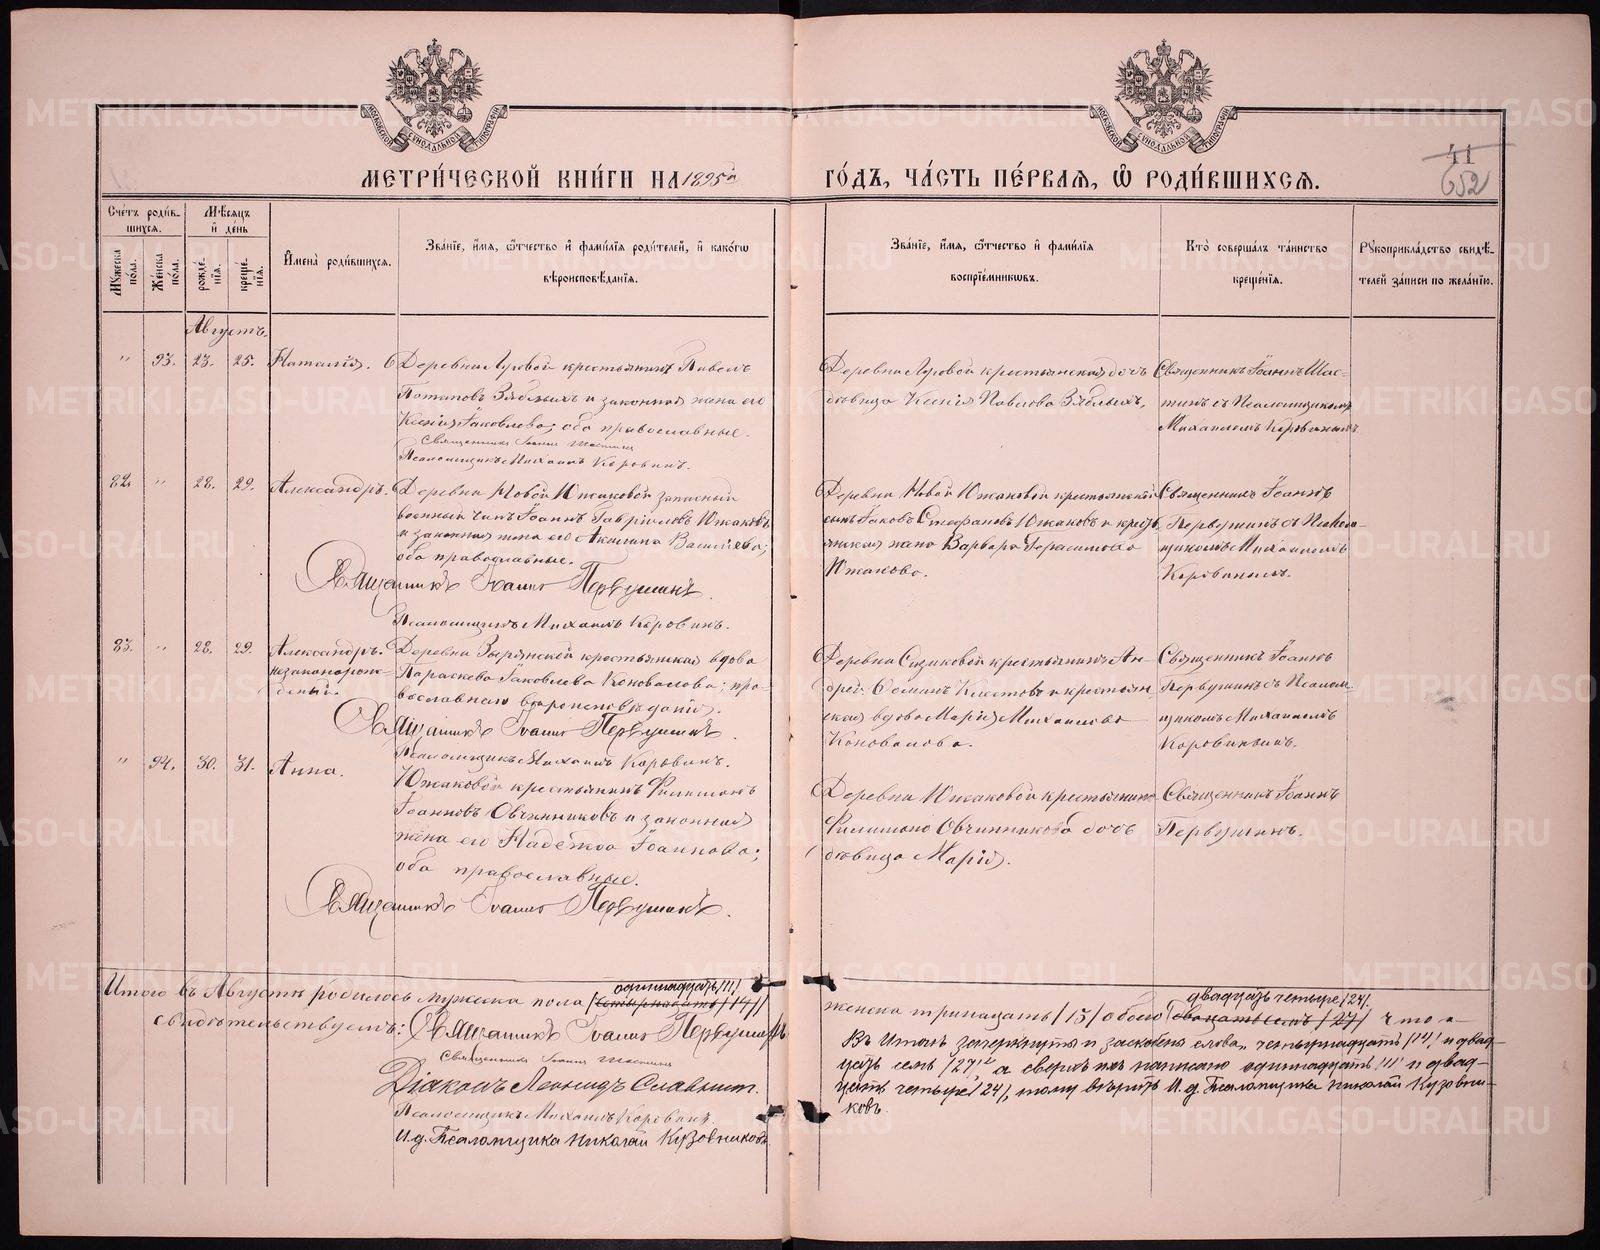 МЕТРИ́ЧЕСКОЙ КНИ́ГИ НА 1895й ГО́ДЪ, ЧА́СТЬ ПЕ́РВАЯ, Ѡ РОДИ́ВШИХСЯ.
41
652
Сче́тъ роди́вшихся.
Мѣ́сяцъ и де́нь
Му́жеска по́ла.
Же́нска по́ла.
рожде́нїя.
креще́нїя.
Имена̀ роди́вшихся.
Зва́нїе, и́мя, ѻ́тчество и фами́лїя роди́телей, и како́гѡ
вѣроисповѣ́данїя.
Зва́нїе, и́мя, ѻ́тчество и фами́лїя
воспрїе́мникѡвъ.
Кто̀ соверша́лъ та́инство
креще́нїя.
Рукоприкла́дство свидѣ́-
телей за́писи по жела́нїю.
Августъ.
" 93. 23. 25. Наталія.
Деревни Луговой крестьянинъ Павелъ
Потаповъ Зяблыхъ и законная жена его
Ксенія Іаковлева; оба православные.
Священникъ Іоаннъ
Псаломщикъ Михаилъ Коровинъ.
Деревни Луговой крестьянская дочь
дѣвица Ксенія Павлова Зяблыхъ.
Священникъ Іоаннъ Шас-
тинъ съ Псаломщикомъ
Михаиломъ Коровинымъ.
82. " 28. 29. Александръ.
Деревни Новой Южаковой запасный
военный чинъ Іоаннъ Гавріиловъ Южаковъ
и законная жена его Акилина Василіева;
оба православные.
Священникъ Іоаннъ Первушинъ.
Псаломщикъ Михаилъ Коровинъ.
Деревни Новой Южаковой крестьянскій
сынъ Іаковъ Стефановъ Южаковъ и кресть-
янская жена Варвара Герасимова
Южакова.
Священникъ Іоаннъ
Первушинъ съ Псалом-
щикомъ Михаиломъ
Коровинымъ.
83. " 28. 29. Александръ.
незаконорож-
денный.
Деревни Зырянской крестьянская вдова
Параскева Іаковлева Коновалова; пра-
вославнаго вѣроисповѣданія.
Священникъ Іоаннъ Первушинъ.
Псаломщикъ Михаилъ Коровинъ.
Деревни Сизиковой крестьянинъ Ан-
дрей и крестьян-
ская вдова Марія Михаилова
Коновалова.
Священникъ Іоаннъ
Первушинъ съ Псалом-
щикомъ Михаиломъ
Коровинымъ.
" 94. 30. 31. Анна.
Южаковой крестьянинъ Филимонъ
Іоанновъ Овчинниковъ и законная
жена его Надежда Іоаннова;
оба православные.
Священникъ Іоаннъ Первушинъ.
Деревни Южаковой крестьянина
Филимона Овчинникова дочь
дѣвица Марія.
Священникъ Іоаннъ
Первушинъ.
одиннадцать /11/
Итого въ Августѣ родилось мужеска пола /четырнадцать /14/
двадцать четыре /24/.
женска тринадцать /13/ обоего /двадцать семь /27/ что и
свидѣтельствуемъ: Священникъ Іоаннъ Первушинъ
Священникъ Іоаннъ
Діаконъ Леонидъ Славнинъ.
Псаломщикъ Михаилъ Коровинъ.
И.д. Псаломщика Николай Кузовниковъ
Въ итогѣ зачеркнуты и заскоблены слова „четырнадцать /14/ и двад-
цать семь /27/", а сверхъ нихъ написано одиннадцать /11/ и двад-
цать четыре /24/, тому вѣрить И.д. Псаломщика Николай Кузовни-
ковъ.
METRIKI.GASO-URAL.RU